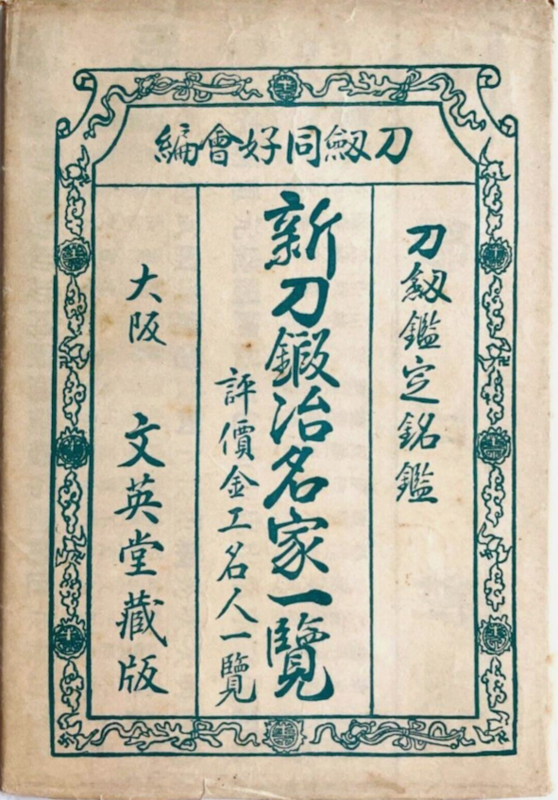 刀劔同好會編
刀劔鑑定銘鑑
新刀鍛冶名家一覽
評價金工名人一覽
大阪 文英堂藏版